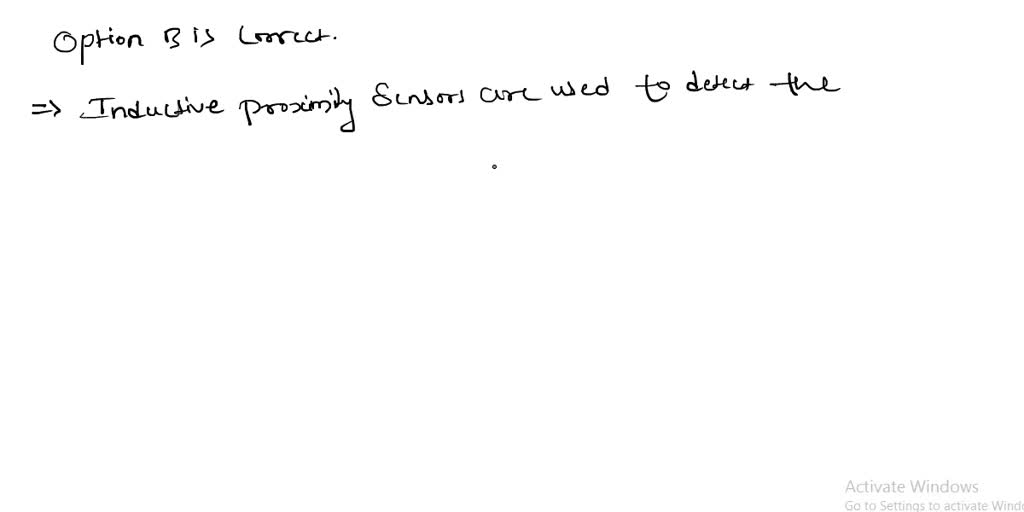 Option B is correct.
=> Inductive proximity Sensors are used to detect the
Activate Windows
Go to Settings to activate Windo